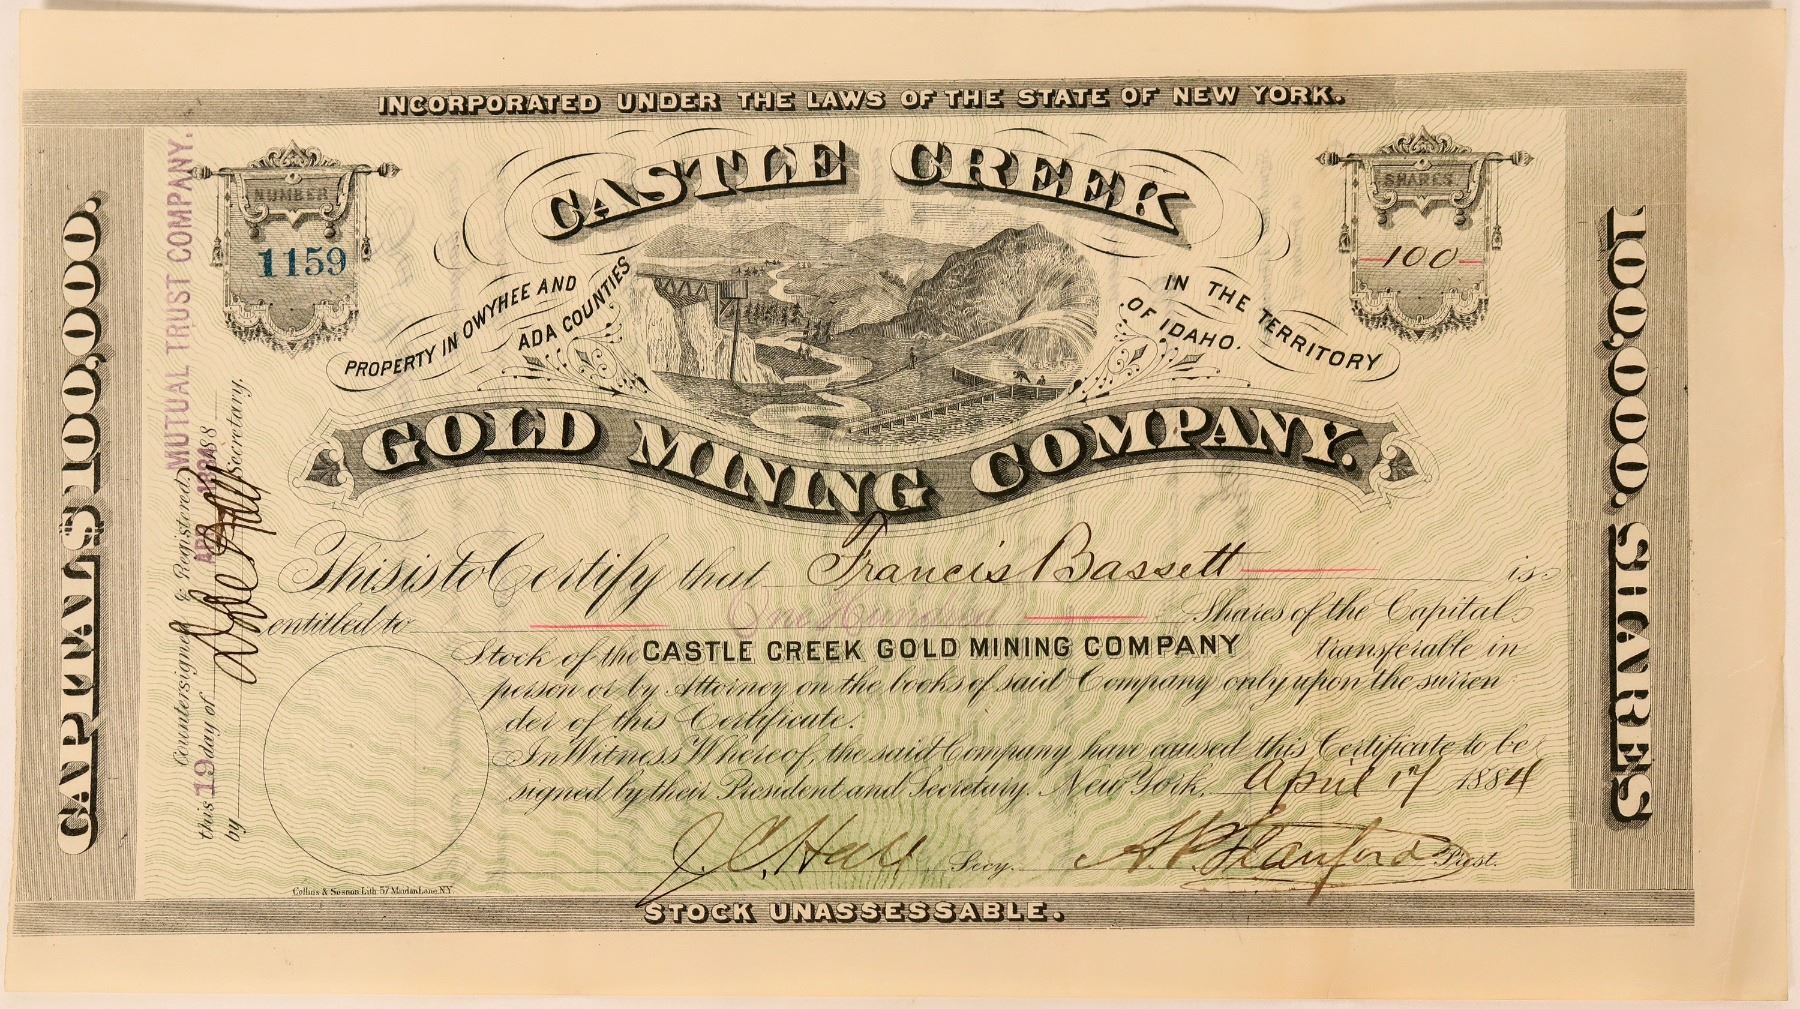 INCORPORATED UNDER THE LAWS OF THE STATE OF NEW YORK.
NUMBER
1159
CASTLE CREEK
SHARES
100
PROPERTY IN OWYHEE AND
ADA COUNTIES
IN THE TERRITORY
OF IDAHO.
GOLD MINING COMPANY.
CAPITAL $100,000.
100,000. SHARES
MUTUAL TRUST COMPANY.
Countersigned & Registered,
this 19 day of APR 188
by Secretary.
This is to Certify that Francis Bassett is
entitled to One Hundred Shares of the Capital
Stock of the CASTLE CREEK GOLD MINING COMPANY transferable in
person or by Attorney on the books of said Company only upon the surren
der of this Certificate.
In Witness Whereof, the said Company have caused this Certificate to be
signed by their President and Secretary. New York, April 17 1884
J. C. Hall Secy. Stanford Prest.
Collins & Sesnon Lith. 57 Maiden Lane N.Y.
STOCK UNASSESSABLE.